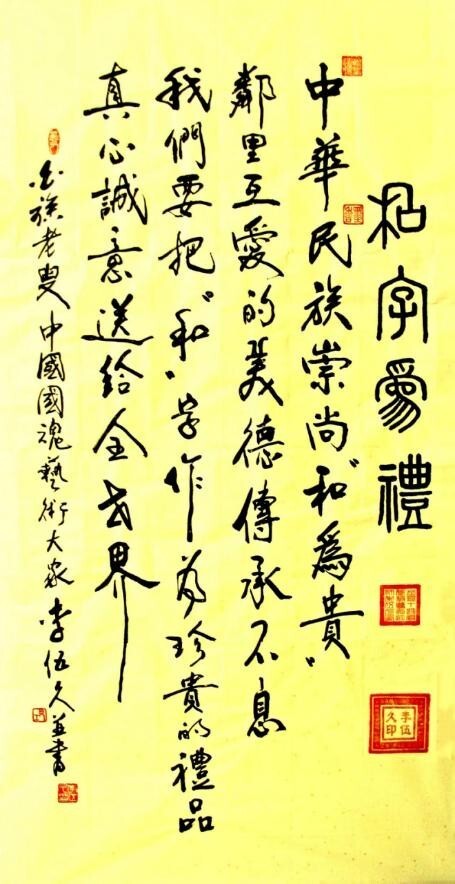 和字為禮
中華民族崇尚“和為貴”
鄰里互愛的美德傳承不息
我們要把“和”字作為珍貴的禮品
真心誠意送給全世界
白族老叟中國國魂藝術大家李伍久並書
李伍久印